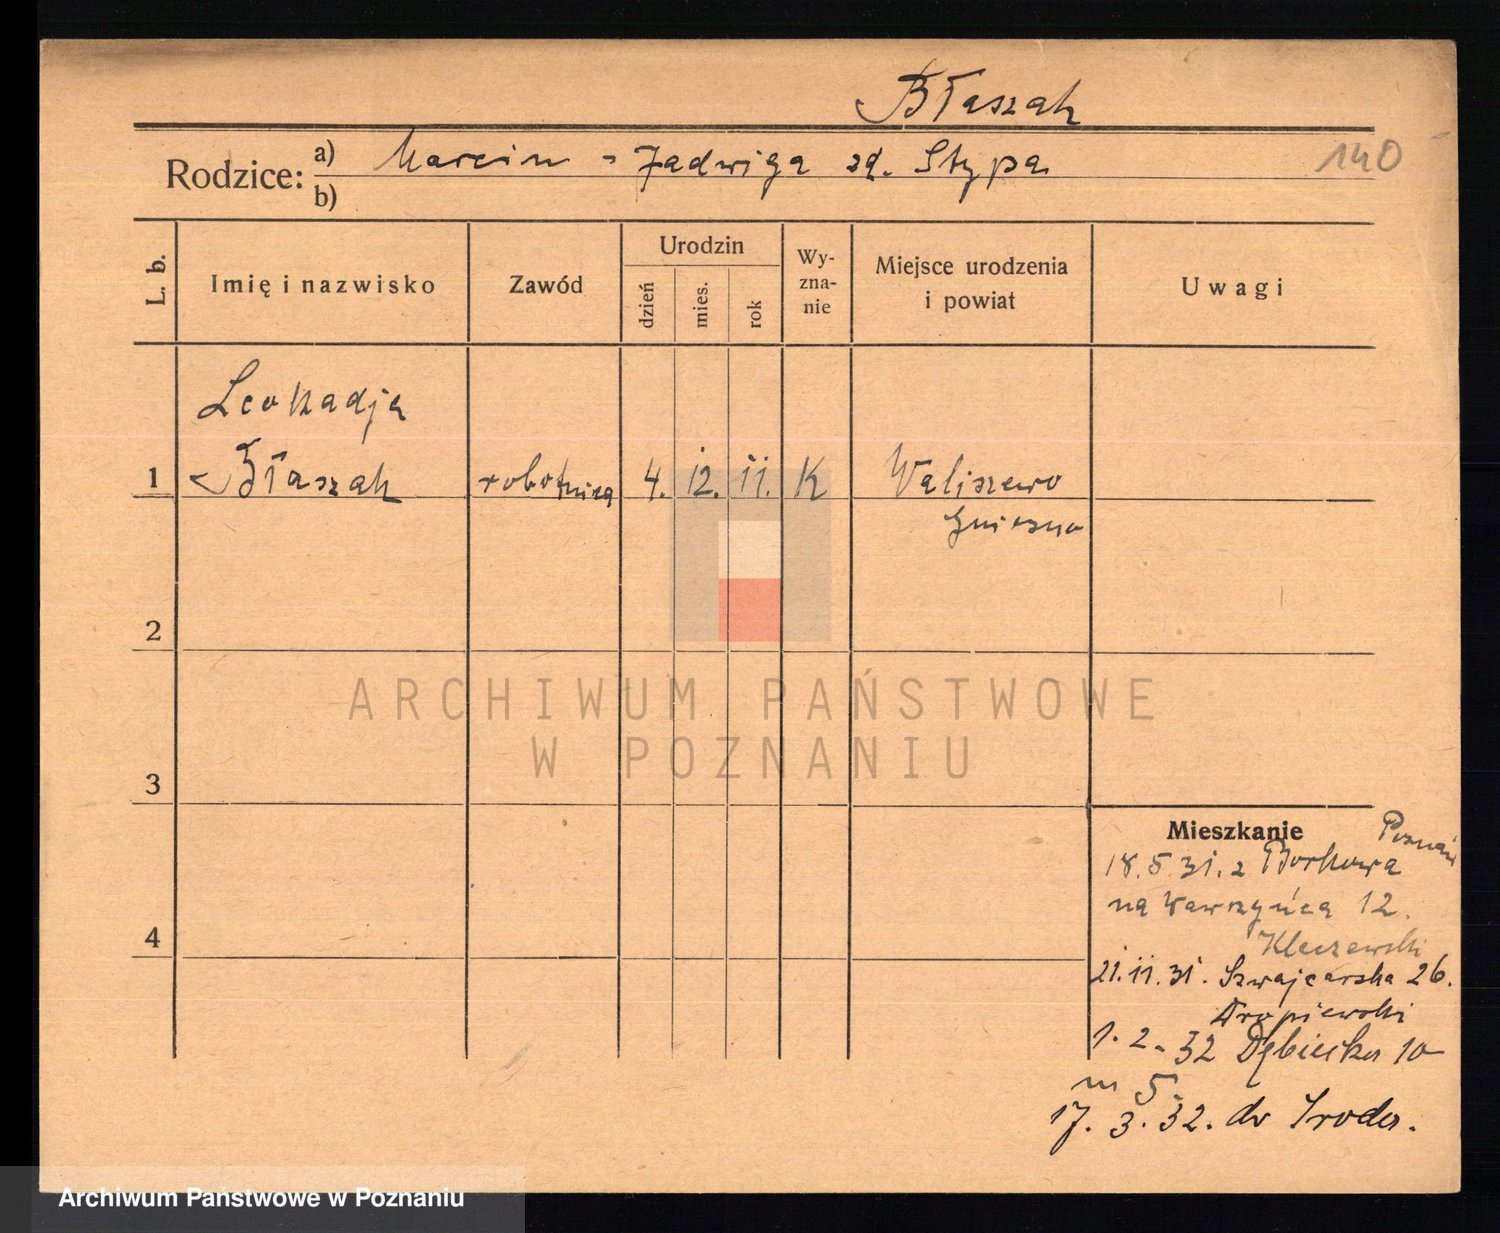 Błaszak
Rodzice: a) Marcin - Jadwiga zd. Stypa
b)
140
L. b.
Imię i nazwisko
Zawód
Urodzin
dzień
mies.
rok
Wy-
zna-
nie
Miejsce urodzenia
i powiat
Uwagi
Leokadja
1 Błaszak robotnica 4. 12. 11. K Waliszewo
Gniezno
2
ARCHIWUM PAŃSTWOWE
W POZNANIU
3
Mieszkanie
Poznań
18.5.31. z Borkowa
na Wawrzyńca 12.
4
Kleczewski
21.11.31. Szwajcarska 26.
1.2.-32 Dębiecka 10
m 5.
17.3.32. do Środa.
Archiwum Państwowe w Poznaniu